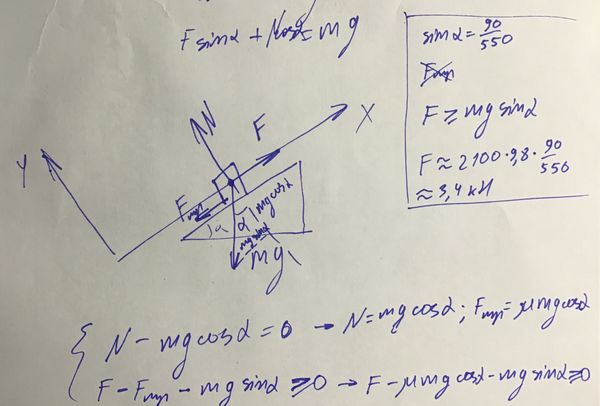 F sinα + N cosα = mg
sinα = 90/550
Fтр
F ⩾ mg sinα
F ≈ 2100 · 9,8 · 90/550
≈ 3,4 кН
N
F
X
Y
Fтр
α
α
mg cosα
mg sinα
mg
N - mg cosα = 0 → N = mg cosα; Fтр = μmg cosα
F - Fтр - mg sinα ⩾ 0 → F - μmg cosα - mg sinα ⩾ 0